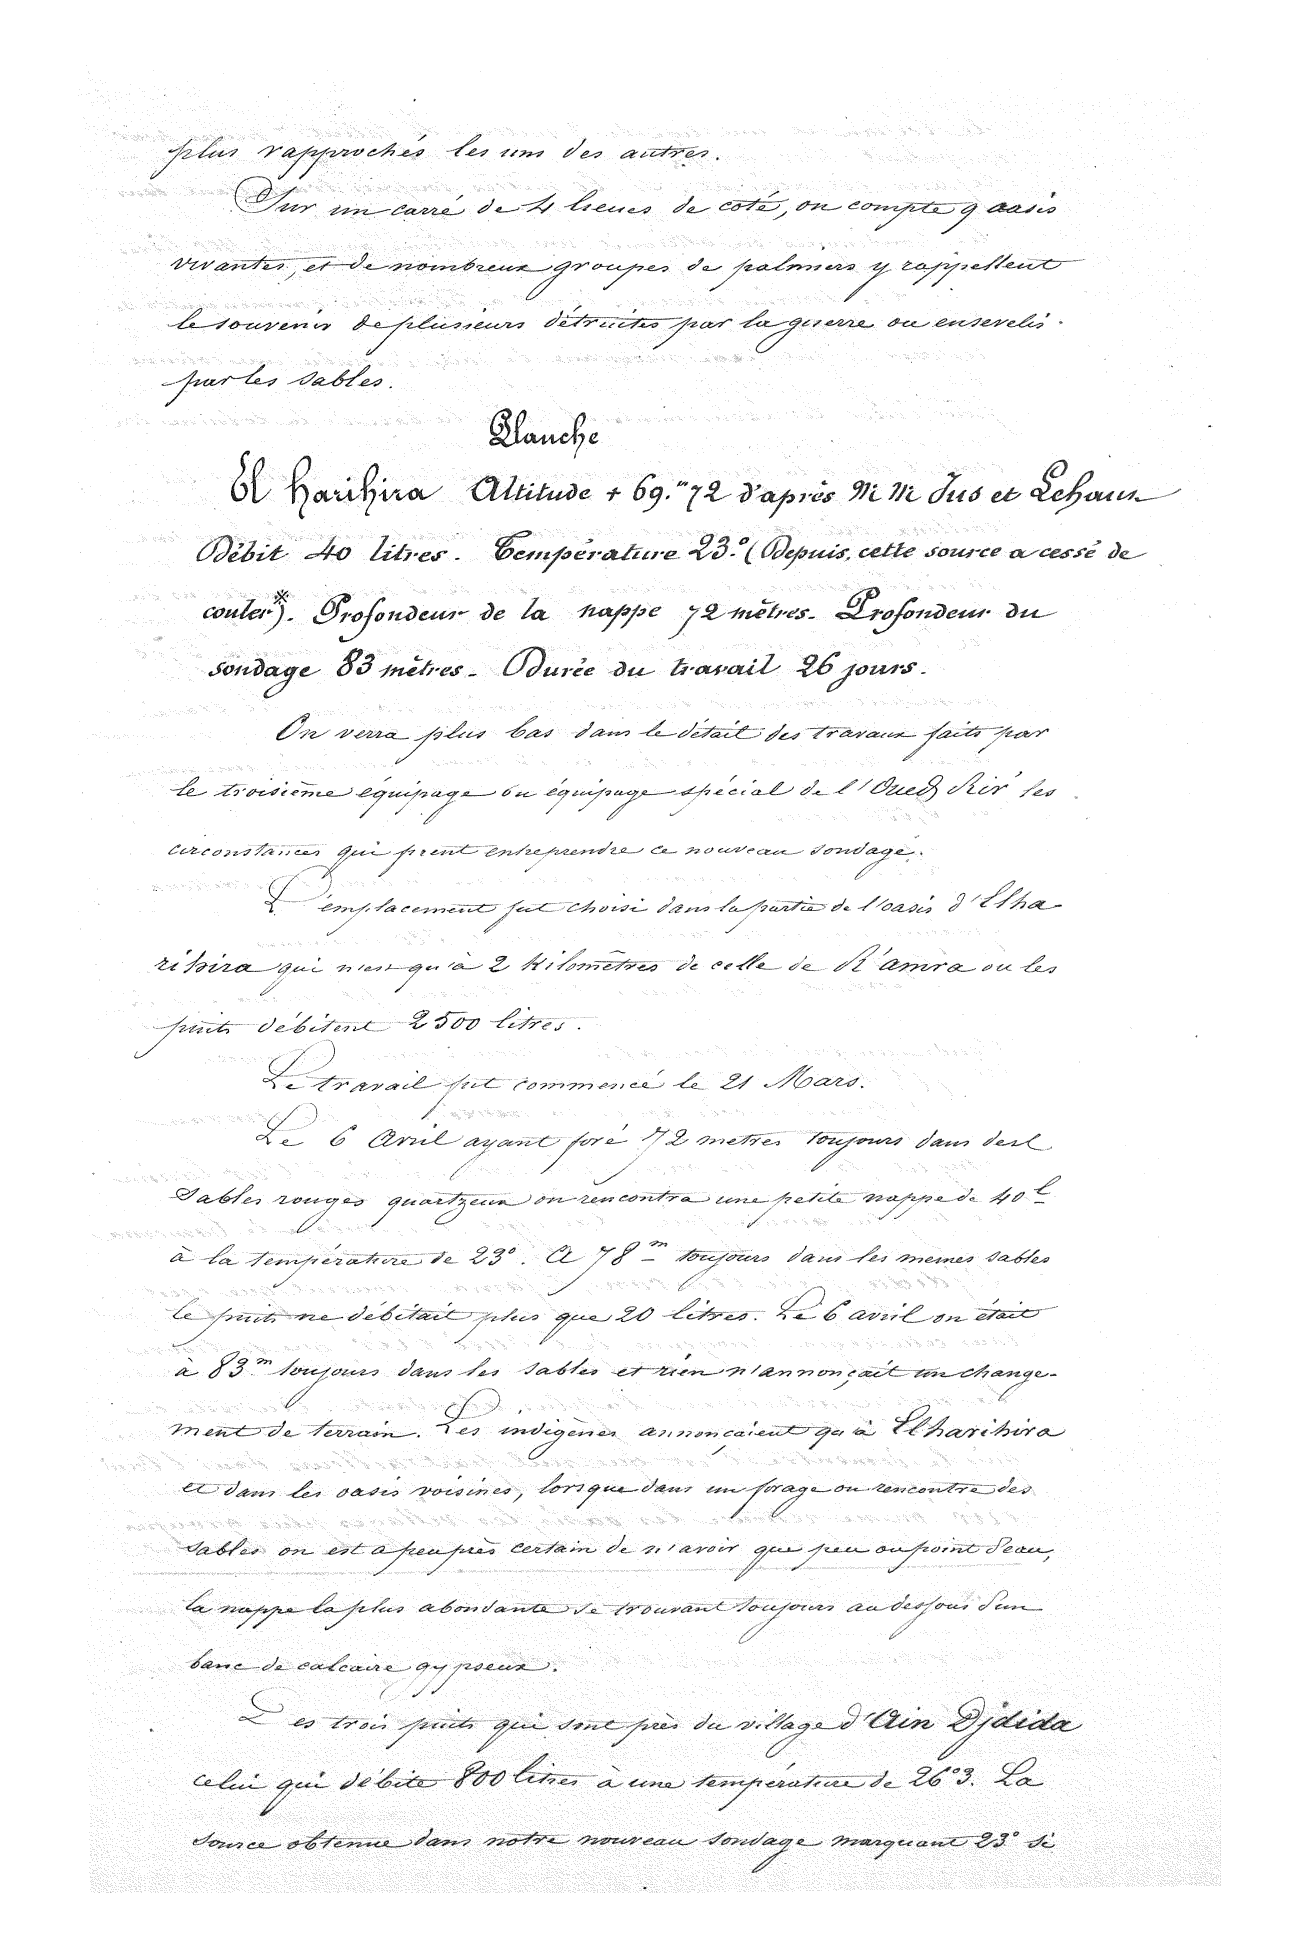 plus rapprochés les uns des autres.
Sur un carré de 4 lieues de coté, on compte 9 oasis
vivantes, et de nombreux groupes de palmiers y rappellent
le souvenir de plusieurs détruites par la guerre ou ensevelis
par les sables.
Planche
El Harihira Altitude + 69.m72 d'après M M Jus et Lehaux
Débit 40 litres. Température 23.° (Depuis, cette source a cessé de
couler*). Profondeur de la nappe 72 mètres. Profondeur du
sondage 83 mètres. Durée du travail 26 jours.
On verra plus bas dans le détail des travaux faits par
le troisième équipage ou équipage spécial de l'Oued Rir' les
circonstances qui firent entreprendre ce nouveau sondage.
L'emplacement fut choisi dans la partie de l'oasis d'Elha-
rihira qui n'est qu'à 2 Kilomètres de celle de R'amra où les
puits débitent 2500 litres.
Le travail fut commencé le 21 Mars.
Le 6 Avril ayant foré 72 metres toujours dans des
sables rouges quartzeux on rencontra une petite nappe de 40 l
à la température de 23°. A 78m toujours dans les memes sables
le puits ne débitait plus que 20 litres. Le 6 avril on était
à 83m toujours dans les sables et rien n'annonçait un change-
ment de terrain. Les indigènes annonçaient qu'à Elharihira
et dans les oasis voisines, lorsque dans un forage on rencontre des
sables on est a peu près certain de n'avoir que peu ou point d'eau,
la nappe la plus abondante se trouvant toujours au dessous d'un
banc de calcaire gypseux.
Des trois puits qui sont près du village d'Ain Djdida
celui qui débite 800 litres à une température de 26°3. La
source obtenue dans notre nouveau sondage marquant 23° si